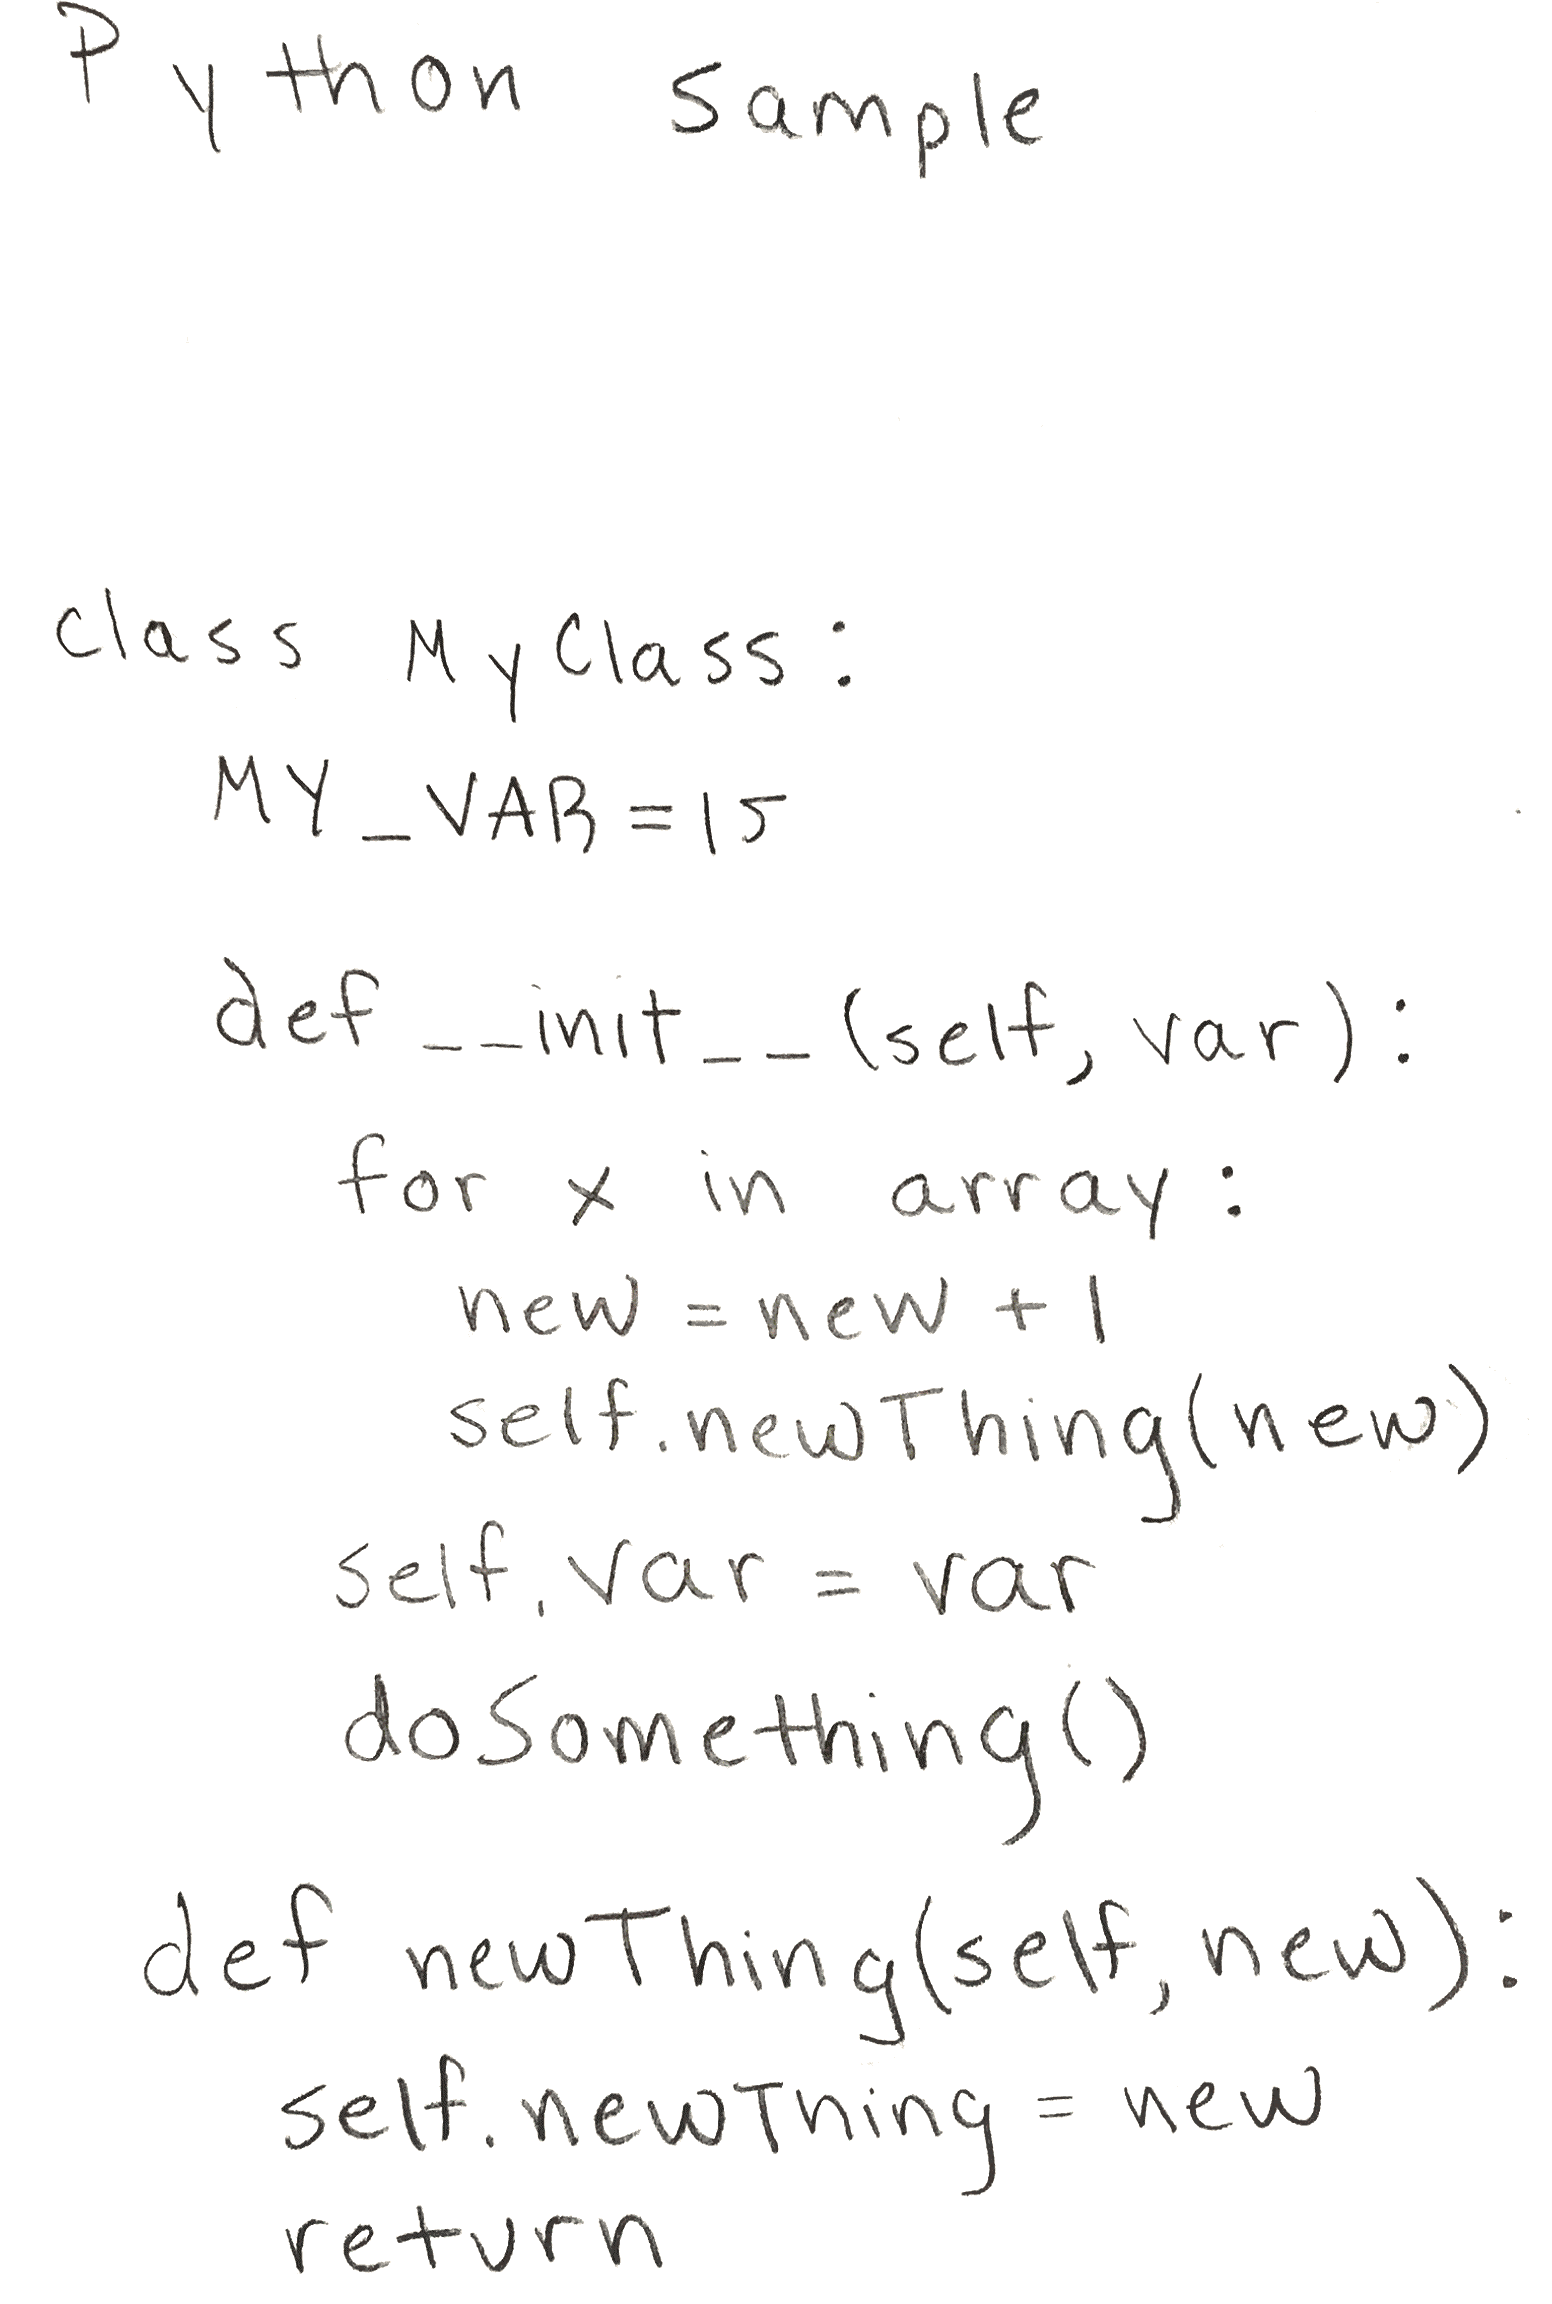 Python Sample
class MyClass:
    MY_VAR=15
    def __init__(self, var):
        for x in array:
            new = new + 1
            self.newThing(new)
        self.var = var
        doSomething()
    def newThing(self, new):
        self.newThing = new
        return